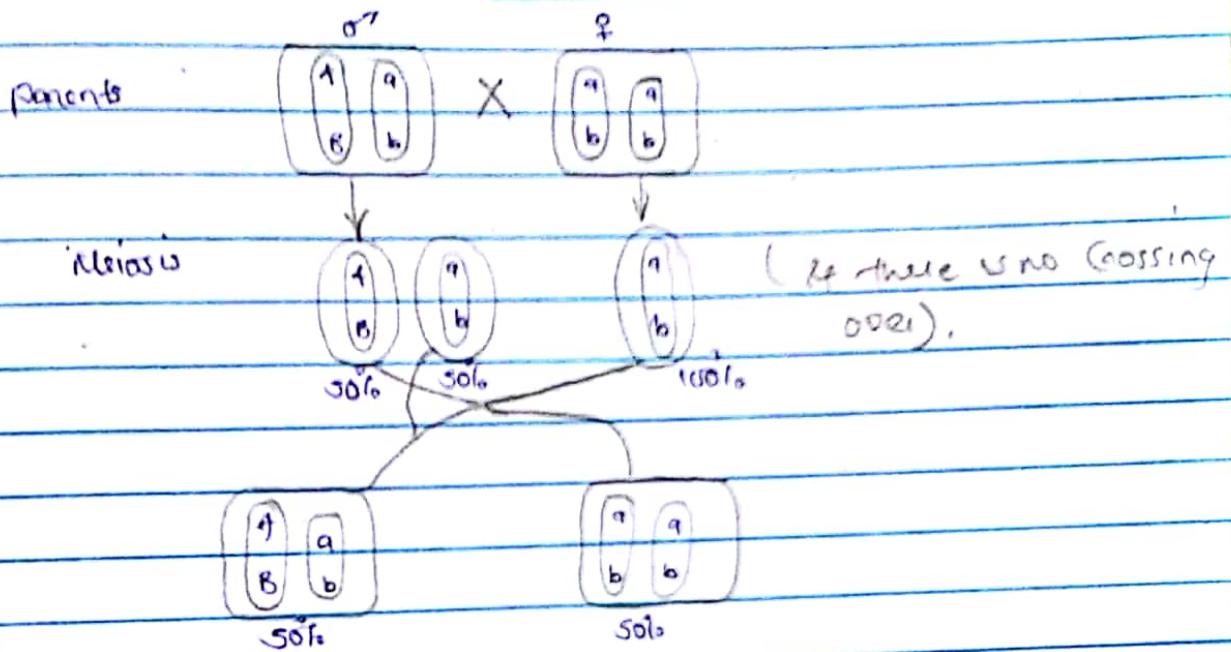 ♂ ♀
parents
A a X a a
B b b b
Meiosis
A a a (if there is no Crossing
B b b over).
50% 50% 100%
A a a a
B b b b
50% 50%